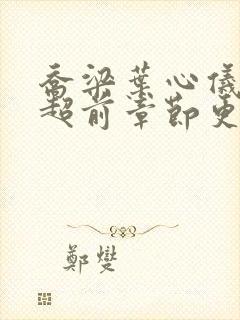 乔梁葉心儀
超前章節更
鄭燮